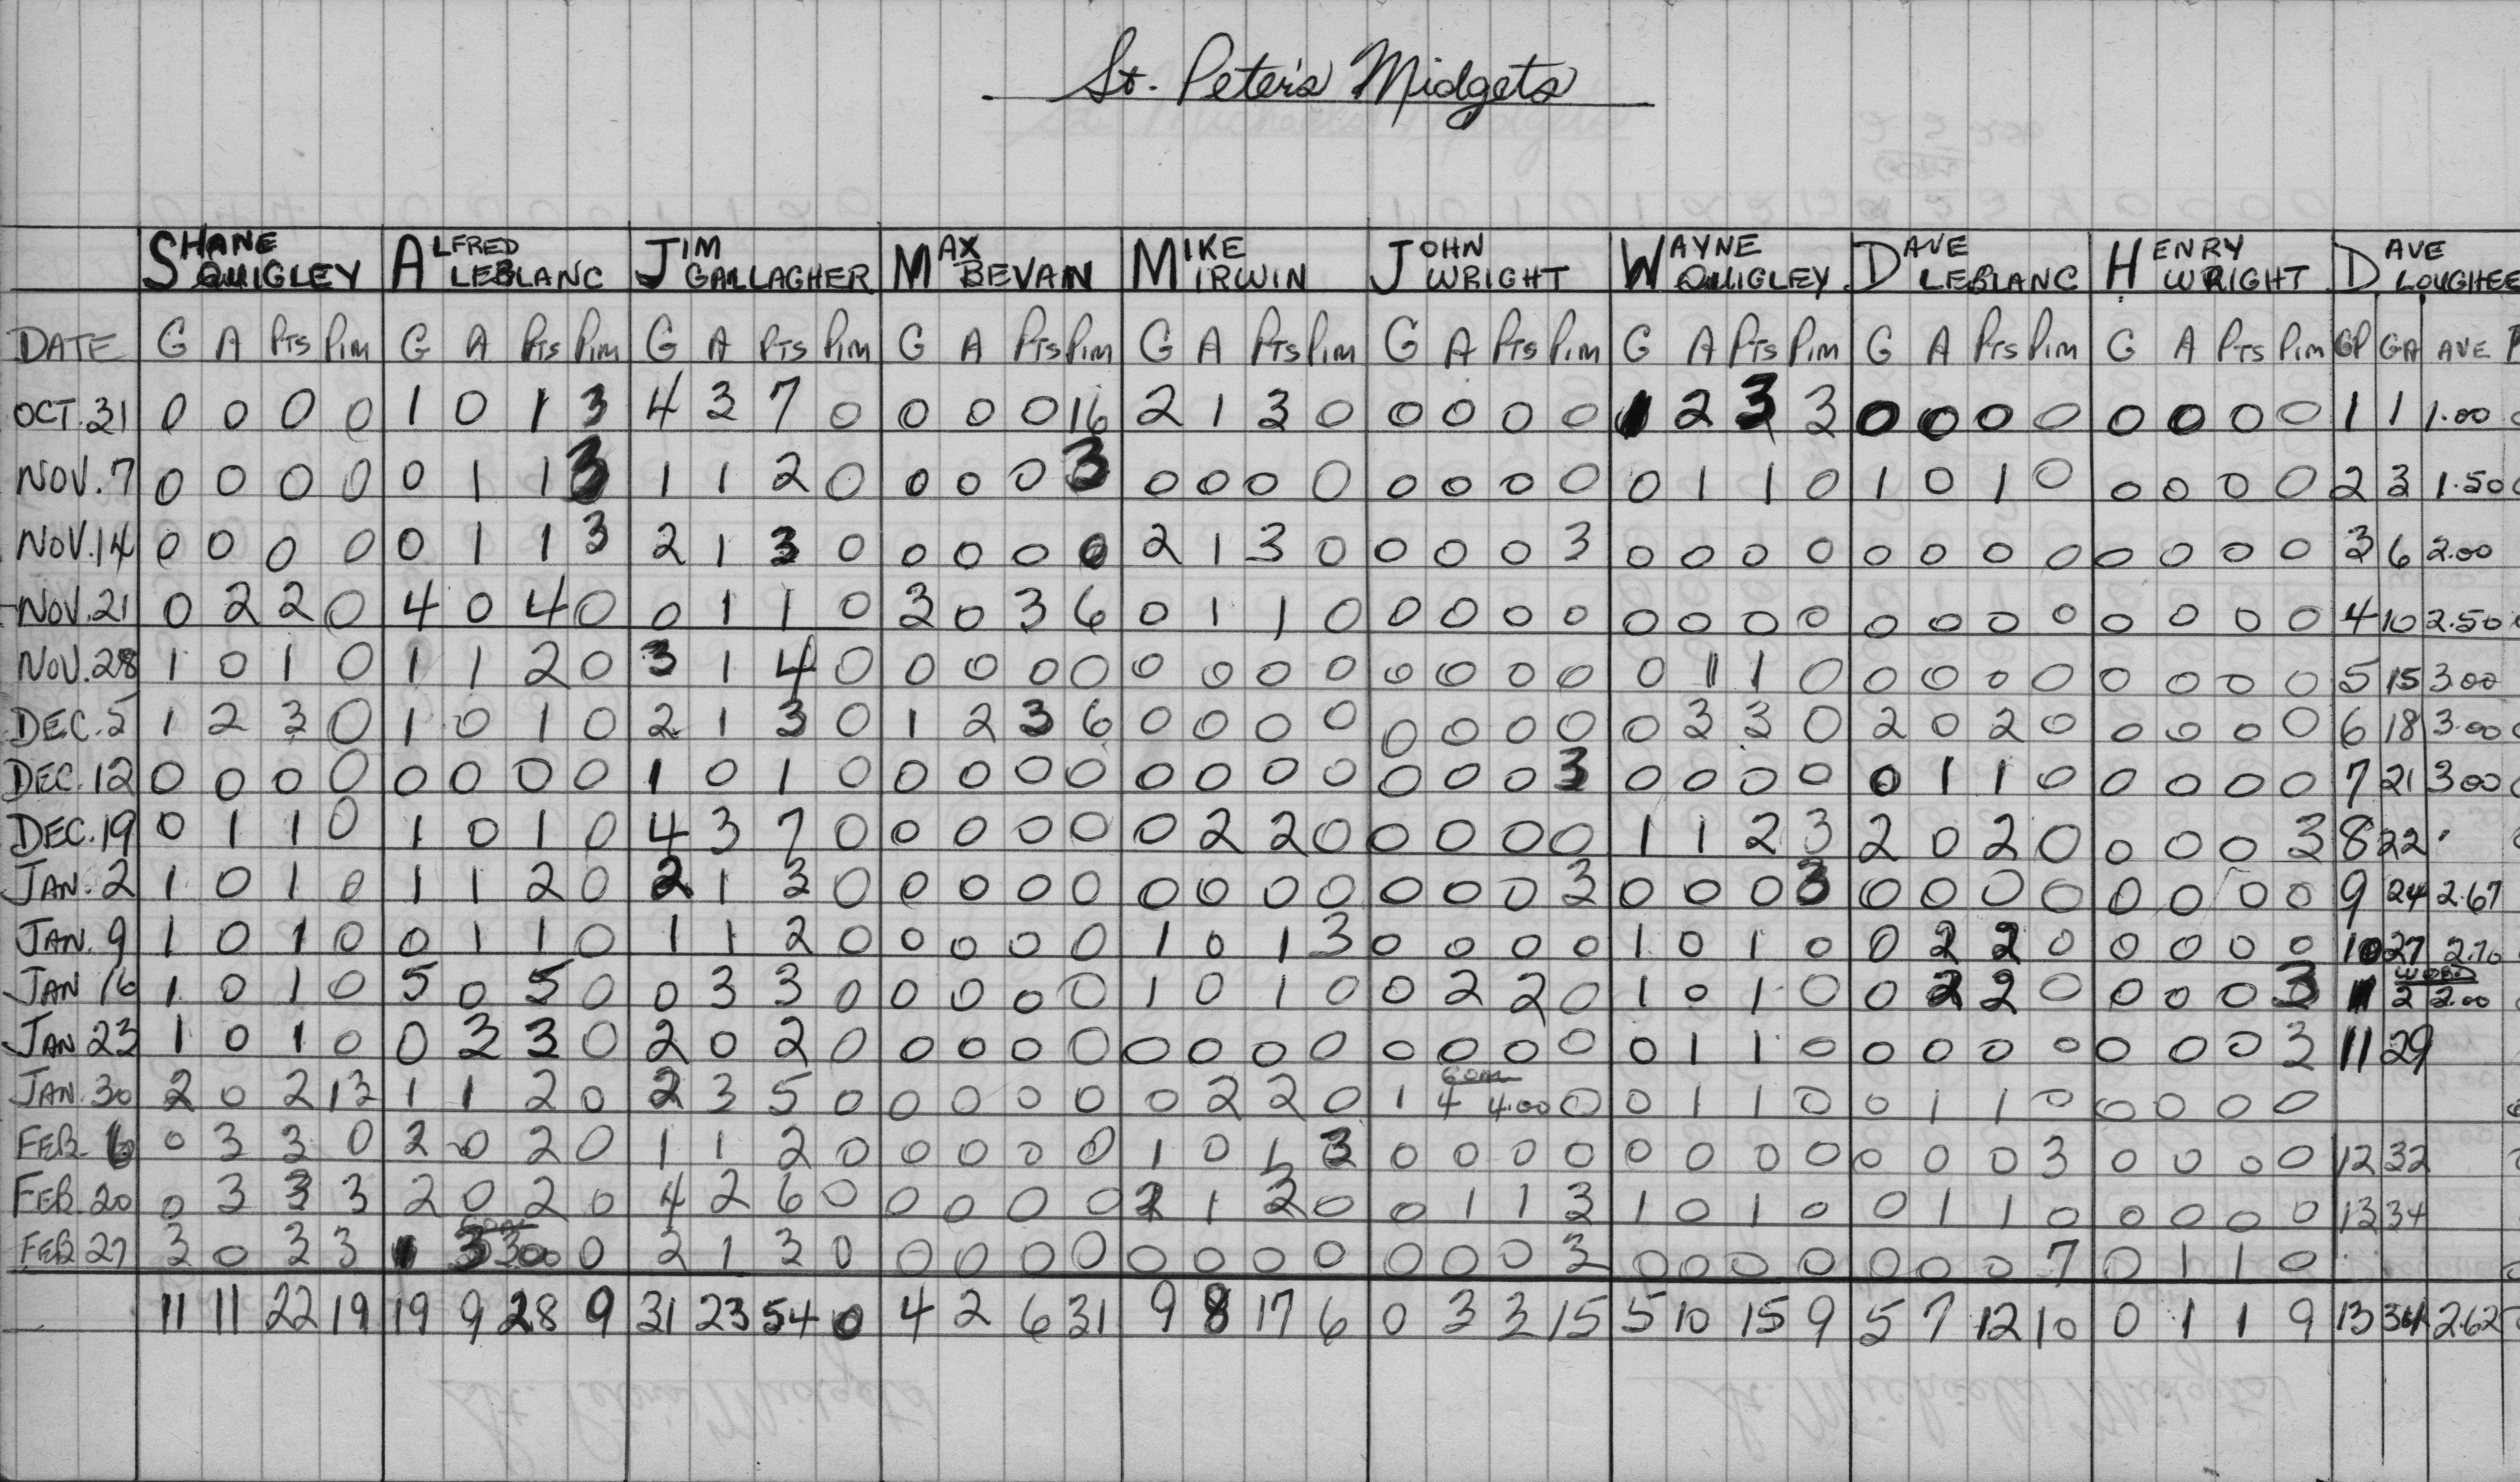 St. Peter's Midgets
SHANE QUIGLEY ALFRED LEBLANC JIM GALLAGHER MAX BEVAN MIKE IRWIN JOHN WRIGHT WAYNE QUIGLEY DAVE LEBLANC HENRY WRIGHT DAVE LOUGHEE
DATE G A Pts Pim G A Pts Pim G A Pts Pim G A Pts Pim G A Pts Pim G A Pts Pim G A Pts Pim G A Pts Pim G A Pts Pim GP GA AVE
OCT. 31 0 0 0 0 1 0 1 3 4 3 7 0 0 0 0 16 2 1 3 0 0 0 0 0 1 2 3 3 0 0 0 0 0 0 0 0 1 1 1.00
NOV. 7 0 0 0 0 0 1 1 3 1 1 2 0 0 0 0 3 0 0 0 0 0 0 0 0 0 1 1 0 1 0 1 0 0 0 0 0 2 3 1.50
NOV. 14 0 0 0 0 0 1 1 3 2 1 3 0 0 0 0 0 2 1 3 0 0 0 0 3 0 0 0 0 0 0 0 0 0 0 0 0 3 6 2.00
NOV. 21 0 2 2 0 4 0 4 0 0 1 1 0 3 0 3 6 0 1 1 0 0 0 0 0 0 0 0 0 0 0 0 0 0 0 0 0 4 10 2.50
NOV. 28 1 0 1 0 1 1 2 0 3 1 4 0 0 0 0 0 0 0 0 0 0 0 0 0 0 1 1 0 0 0 0 0 0 0 0 0 5 15 3.00
DEC. 5 1 2 3 0 1 0 1 0 2 1 3 0 1 2 3 6 0 0 0 0 0 0 0 0 0 3 3 0 2 0 2 0 0 0 0 0 6 18 3.00
DEC. 12 0 0 0 0 0 0 0 0 1 0 1 0 0 0 0 0 0 0 0 0 0 0 0 3 0 0 0 0 0 1 1 0 0 0 0 0 7 21 3.00
DEC. 19 0 1 1 0 1 0 1 0 4 3 7 0 0 0 0 0 0 2 2 0 0 0 0 0 1 1 2 3 2 0 2 0 0 0 0 3 8 22
JAN. 2 1 0 1 0 1 1 2 0 2 1 3 0 0 0 0 0 0 0 0 0 0 0 0 3 0 0 0 3 0 0 0 0 0 0 0 0 9 24 2.67
JAN. 9 1 0 1 0 0 1 1 0 1 1 2 0 0 0 0 0 1 0 1 3 0 0 0 0 1 0 1 0 0 2 2 0 0 0 0 0 10 27 2.70
JAN 16 1 0 1 0 5 0 5 0 0 3 3 0 0 0 0 0 1 0 1 0 0 2 2 0 1 0 1 0 0 2 2 0 0 0 0 3 2 2.00
JAN 23 1 0 1 0 0 3 3 0 2 0 2 0 0 0 0 0 0 0 0 0 0 0 0 0 0 1 1 0 0 0 0 0 0 0 0 3 11 29
JAN. 30 2 0 2 13 1 1 2 0 2 3 5 0 0 0 0 0 0 2 2 0 1 GOAL 4 4.00 0 0 1 1 0 0 1 1 0 0 0 0 0
FEB. 6 0 3 3 0 2 0 2 0 1 1 2 0 0 0 0 0 1 0 1 3 0 0 0 0 0 0 0 0 0 0 0 3 0 0 0 0 12 32
FEB. 20 0 3 3 3 2 0 2 0 4 2 6 0 0 0 0 0 2 1 3 0 0 1 1 3 1 0 1 0 0 1 1 0 0 0 0 0 13 34
FEB 27 3 0 3 3 1 GOAL 3 3.00 0 2 1 3 0 0 0 0 0 0 0 0 0 0 0 0 3 0 0 0 0 0 0 0 7 0 1 1 0
11 11 22 19 19 9 28 9 31 23 54 0 4 2 6 31 9 8 17 6 0 3 3 15 5 10 15 9 5 7 12 10 0 1 1 9 13 34 2.62